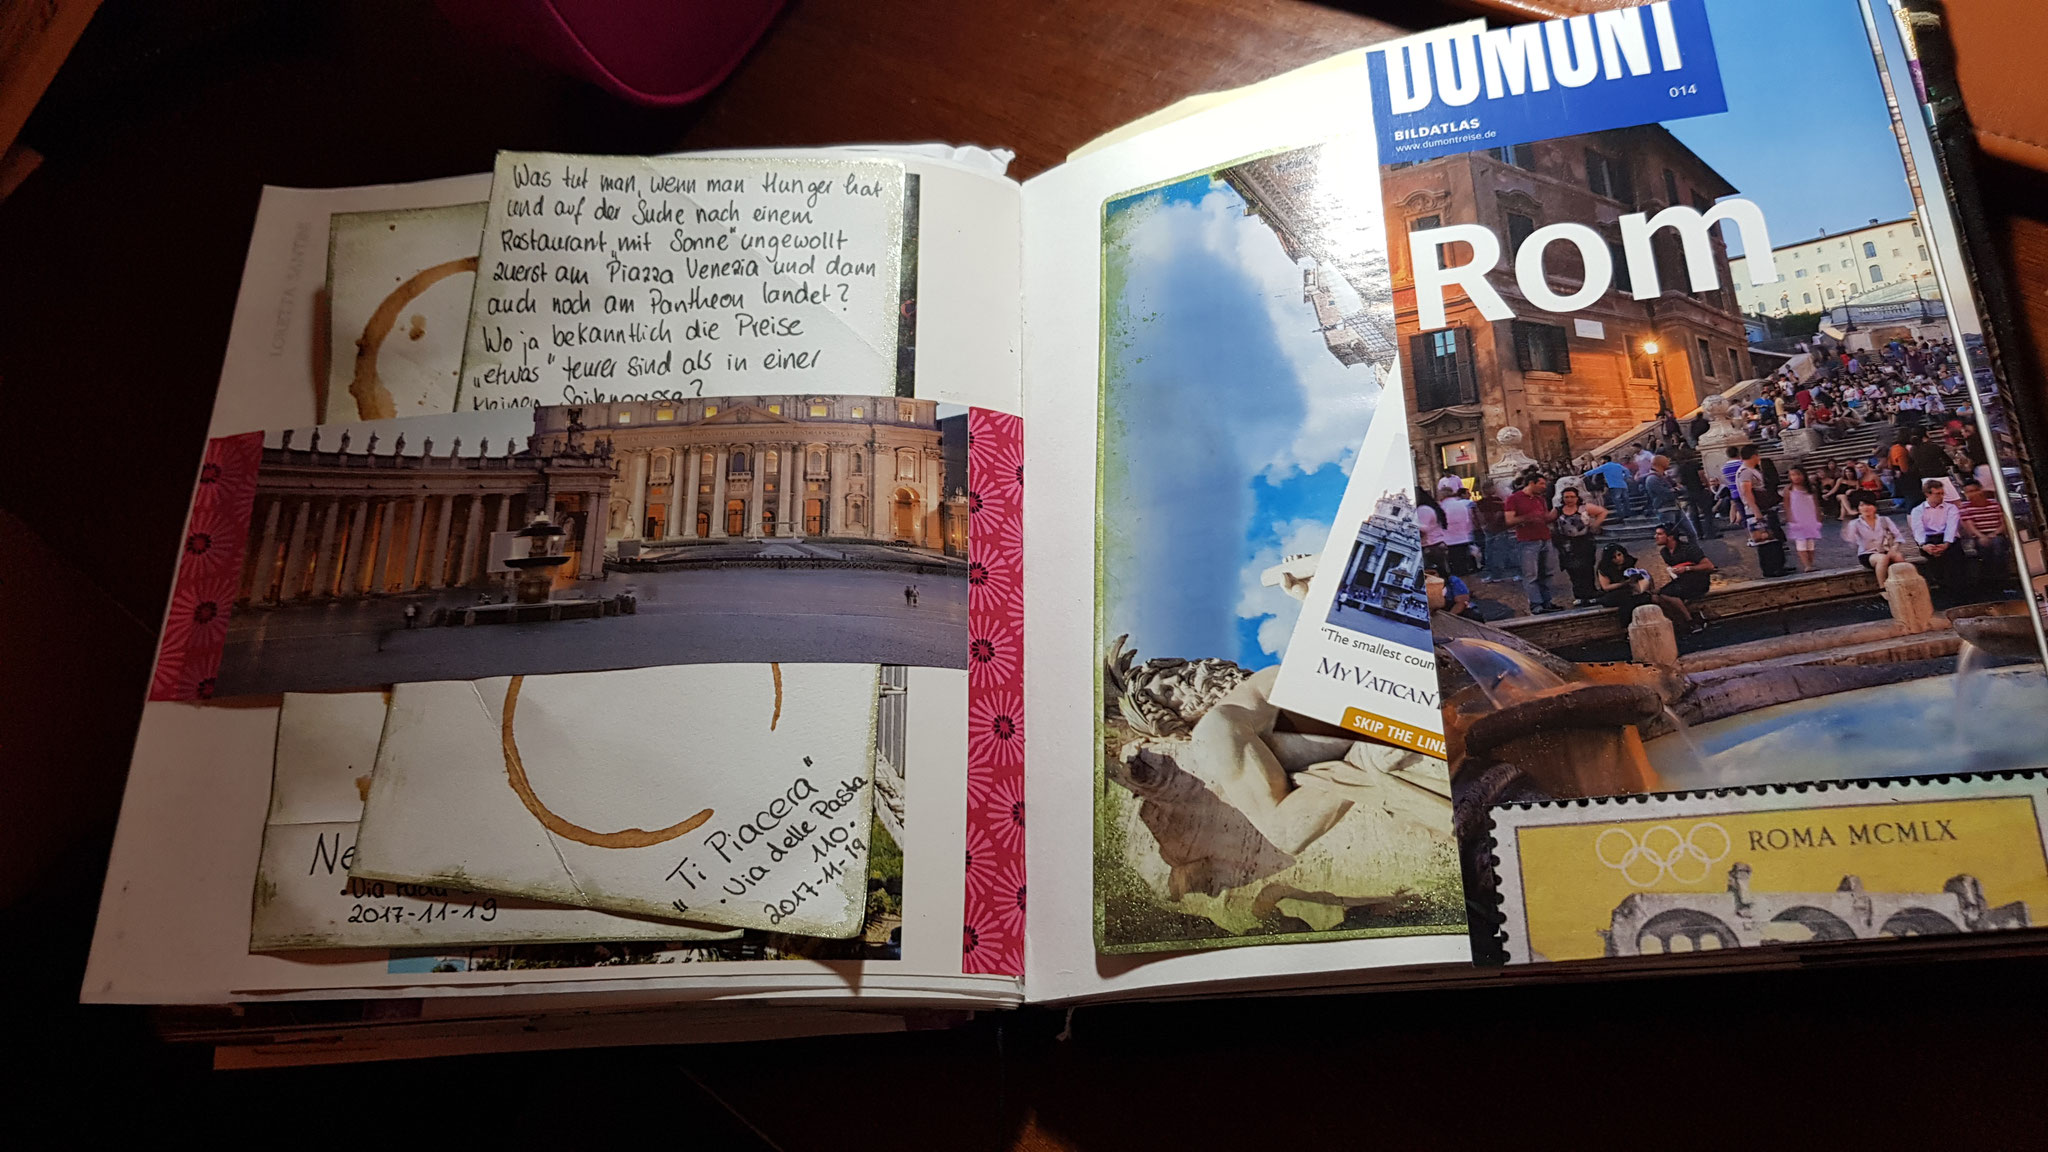 LORETTA SANTINI
Was tut man, wenn man Hunger hat
und auf der Suche nach einem
Restaurant „mit Sonne" ungewollt
zuerst am Piazza Venezia und dann
auch noch am Pantheon landet?
Wo ja bekanntlich die Preise
„etwas" teurer sind als in einer
kleinen Seitengasse?
"Ti Piacera"
.Via delle Pasta
110.
2017-11-19
Ne
.Via
2017-11-19
DUMONT
014
BILDATLAS
www.dumontreise.de
Rom
"The smallest coun
MYVATICAN
SKIP THE LINE
ROMA MCMLX